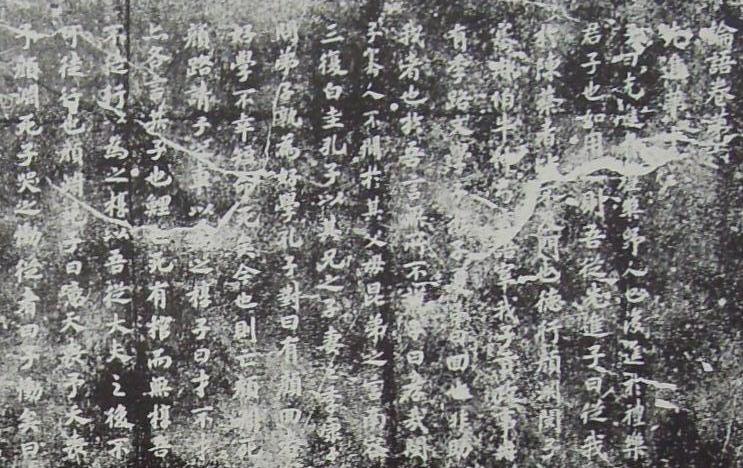 論語卷第
先進第
子曰先進禮樂野人也後進於禮樂
君子也如用之則吾從先進子曰從我
於陳蔡者不及門也德行顏淵閔子
騫冉伯牛仲宰我子貢政事冉
有季路文學子回也非助
我者也於吾言無所不曰孝哉閔
子騫人不間於其父母昆弟之言南容
三復白圭孔子以其兄之子妻之季康子
問弟子孰為好學孔子對曰有顏回者
好學不幸短命死矣今也則亡顏淵死
顏路請子之車以為之椁子曰才不才
亦各言其子也鯉也死有棺而無椁吾
不徒行以為之椁以吾從大夫之後不
可徒行也顏淵死子曰噫天喪予天喪
予顏淵死子哭之慟從者曰子慟矣曰